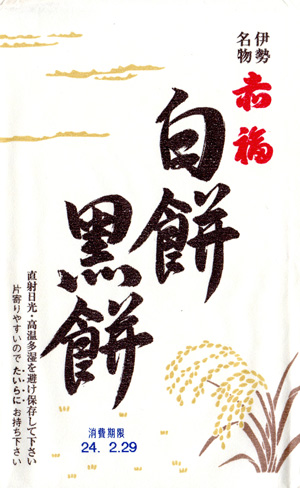 伊勢
名物
赤福
白餅
黒餅
直射日光・高温多湿を避け保存して下さい
片寄りやすいのでたいらにお持ち下さい
消費期限
24. 2.29